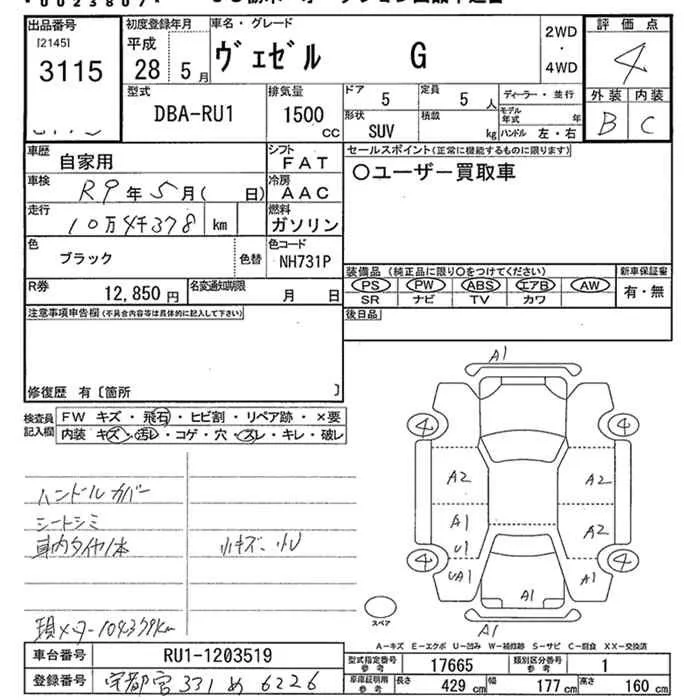 *0023807*
出品番号 初度登録年月 車名・グレード 2WD ・ 4WD 評価点
[2145] 3115 平成 28 5月 ヴェゼル G 4
型式 排気量 ドア 5 定員 5人 ディーラー・並行 外装 内装
DBA-RU1 1500 cc 形状 SUV 積載 kg モデル年式 年 ハンドル 左・右 B C
車歴 自家用 シフト FAT セールスポイント(正常に機能するものに限ります)
車検 R9年5月( 日) 冷房 AAC 〇ユーザー買取車
走行 10万4千378 km 燃料 ガソリン
色 ブラック 色替 色コード NH731P
装備品(純正品に限り〇をつけてください) 新車保証書
R券 12,850円 名変通知期限 月 日 PS PW ABS エアB AW 有・無
SR ナビ TV カワ
注意事項申告欄(不具合内容等は具体的に記入して下さい) 後日品
修復歴 有〔箇所 〕
検査員記入欄 FW キズ・飛石・ヒビ割・リペア跡・×要
内装 キズ・汚レ・コゲ・穴・スレ・キレ・破レ
ハンドルカバー
シートシミ
車内タイヤ1本 小キズ、小U
現メーター104379km
A1
4 4
A2 A2
A1 A2
U1
4 4
UA1 A1 A1
A1
スペア
A-キズ E-エクボ U-凹み W-補修跡 S-サビ C-腐食 XX-交換済
車台番号 RU1-1203519 型式指定番号 参考 17665 類別区分番号 参考 1
登録番号 宇都宮 331 め 6226 車庫証明用 参考 長さ 429 cm 幅 177 cm 高さ 160 cm